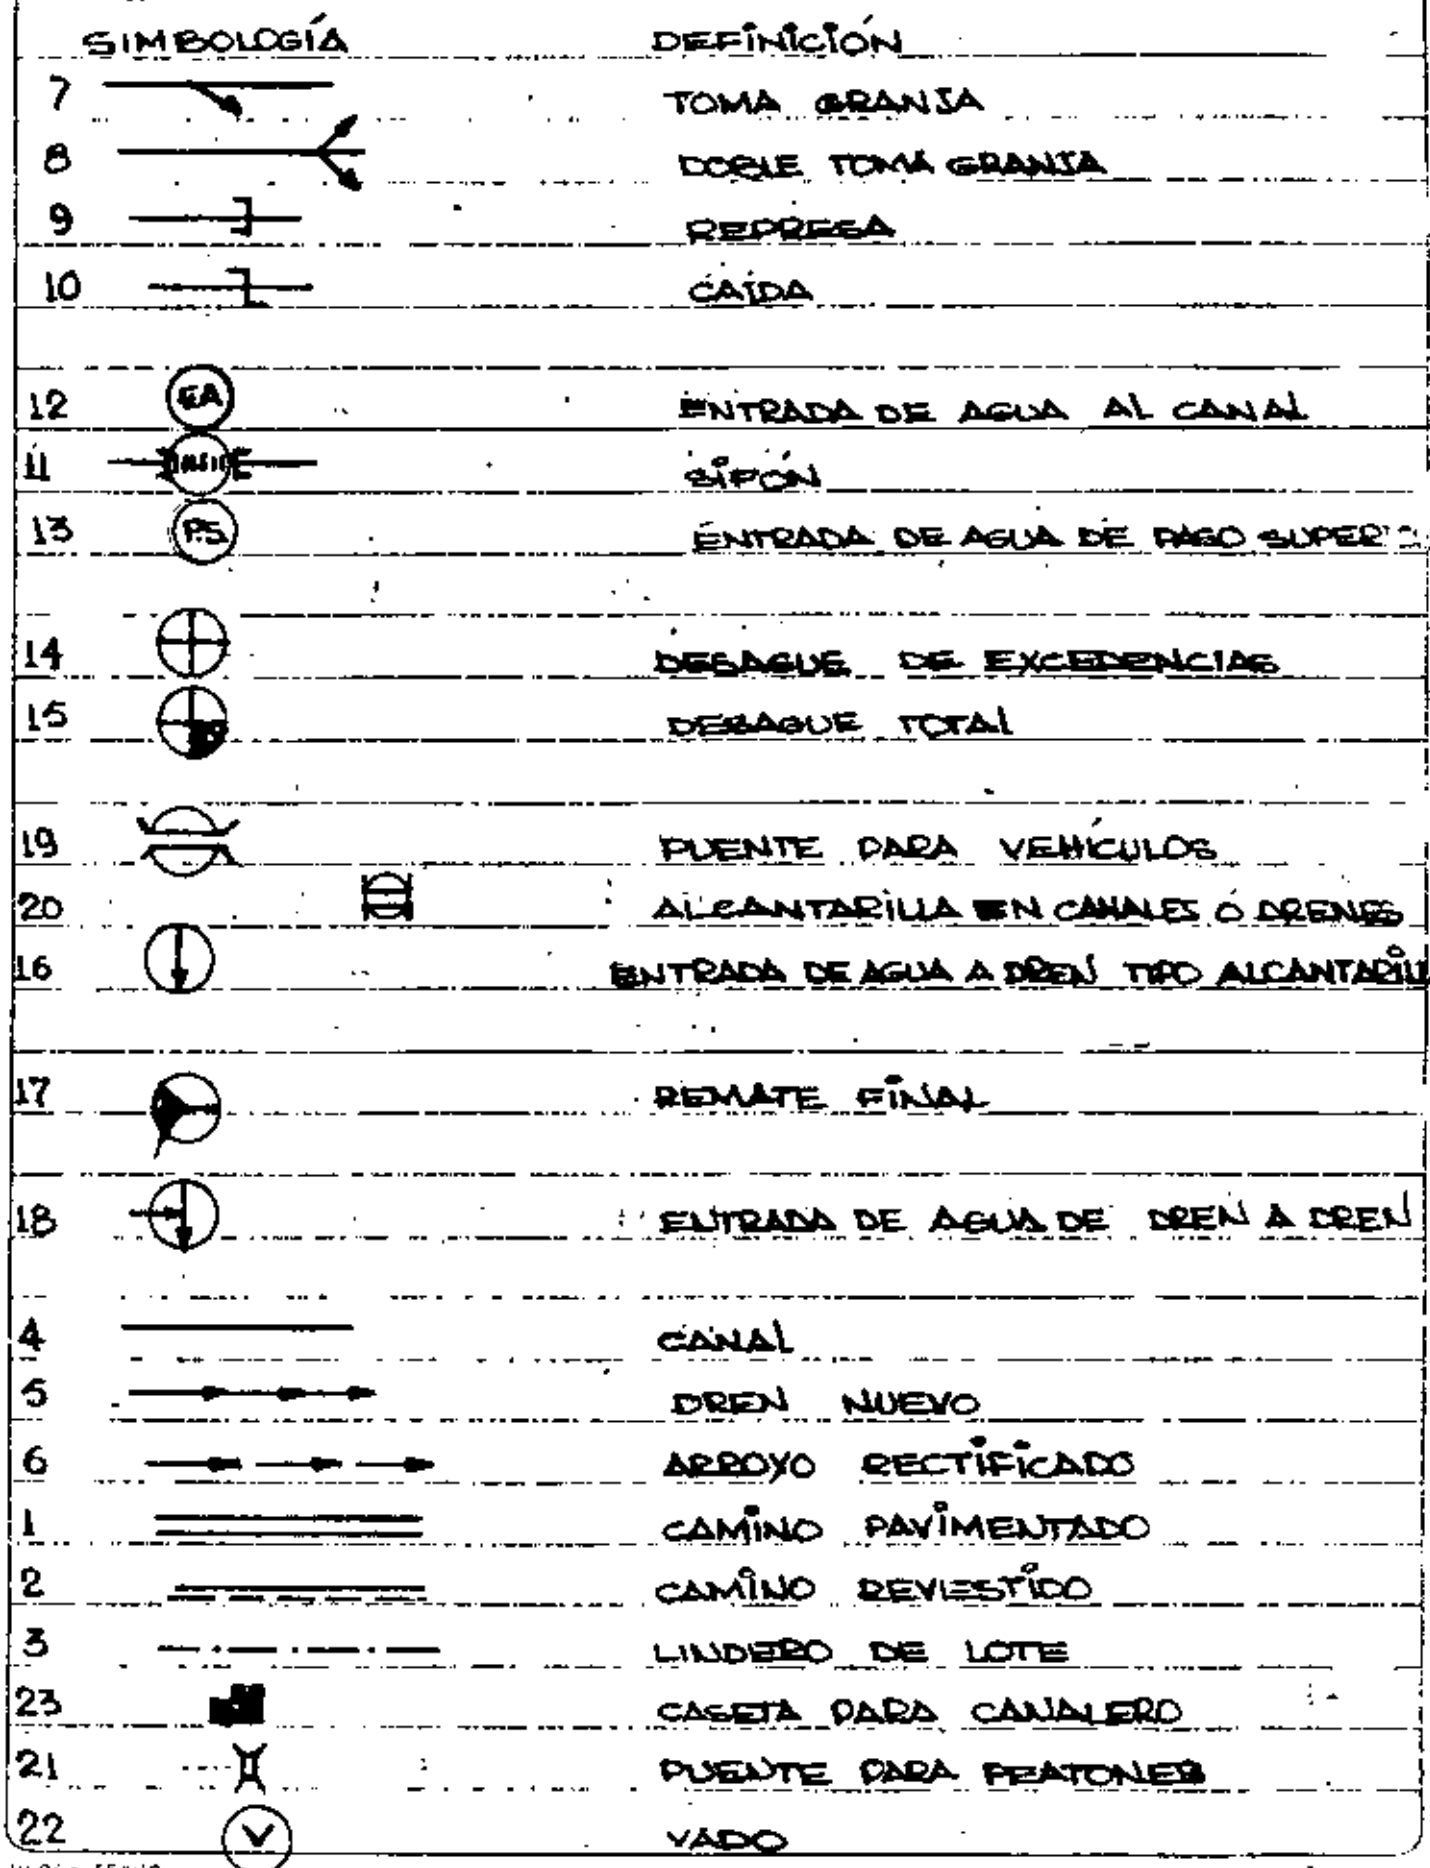 SIMBOLOGÍA DEFINICIÓN
7 TOMA GRANJA
8 DOBLE TOMA GRANJA
9 REPRESA
10 CAÍDA
12 EA ENTRADA DE AGUA AL CANAL
11 SIFÓN
13 P.S ENTRADA DE AGUA DE PASO
14 DESAGUE DE EXCEDENCIAS
15 DESAGUE TOTAL
19 PUENTE PARA VEHÍCULOS
20 ALCANTARILLA EN CANALES Ó DRENES
16 ENTRADA DE AGUA A DREN TIPO
17 REMATE FINAL
18 ENTRADA DE AGUA DE DREN A DREN
4 CANAL
5 DREN NUEVO
6 ARROYO RECTIFICADO
1 CAMINO PAVIMENTADO
2 CAMINO REVIESTIDO
3 LINDERO DE LOTE
23 CASETA PARA CANALERO
21 PUENTE PARA PEATONES
22 V VADO